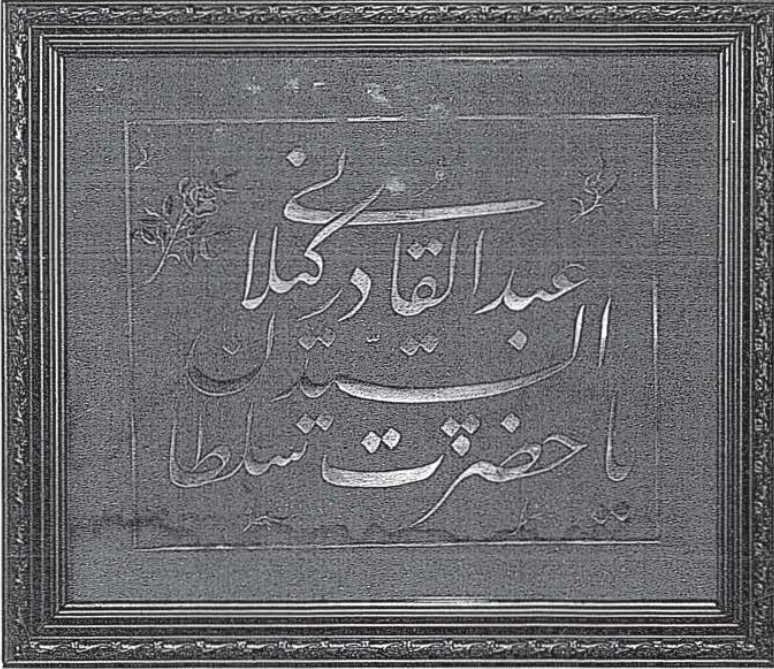 یا حضرت سلطان
السیّد
عبدالقادر گیلانی